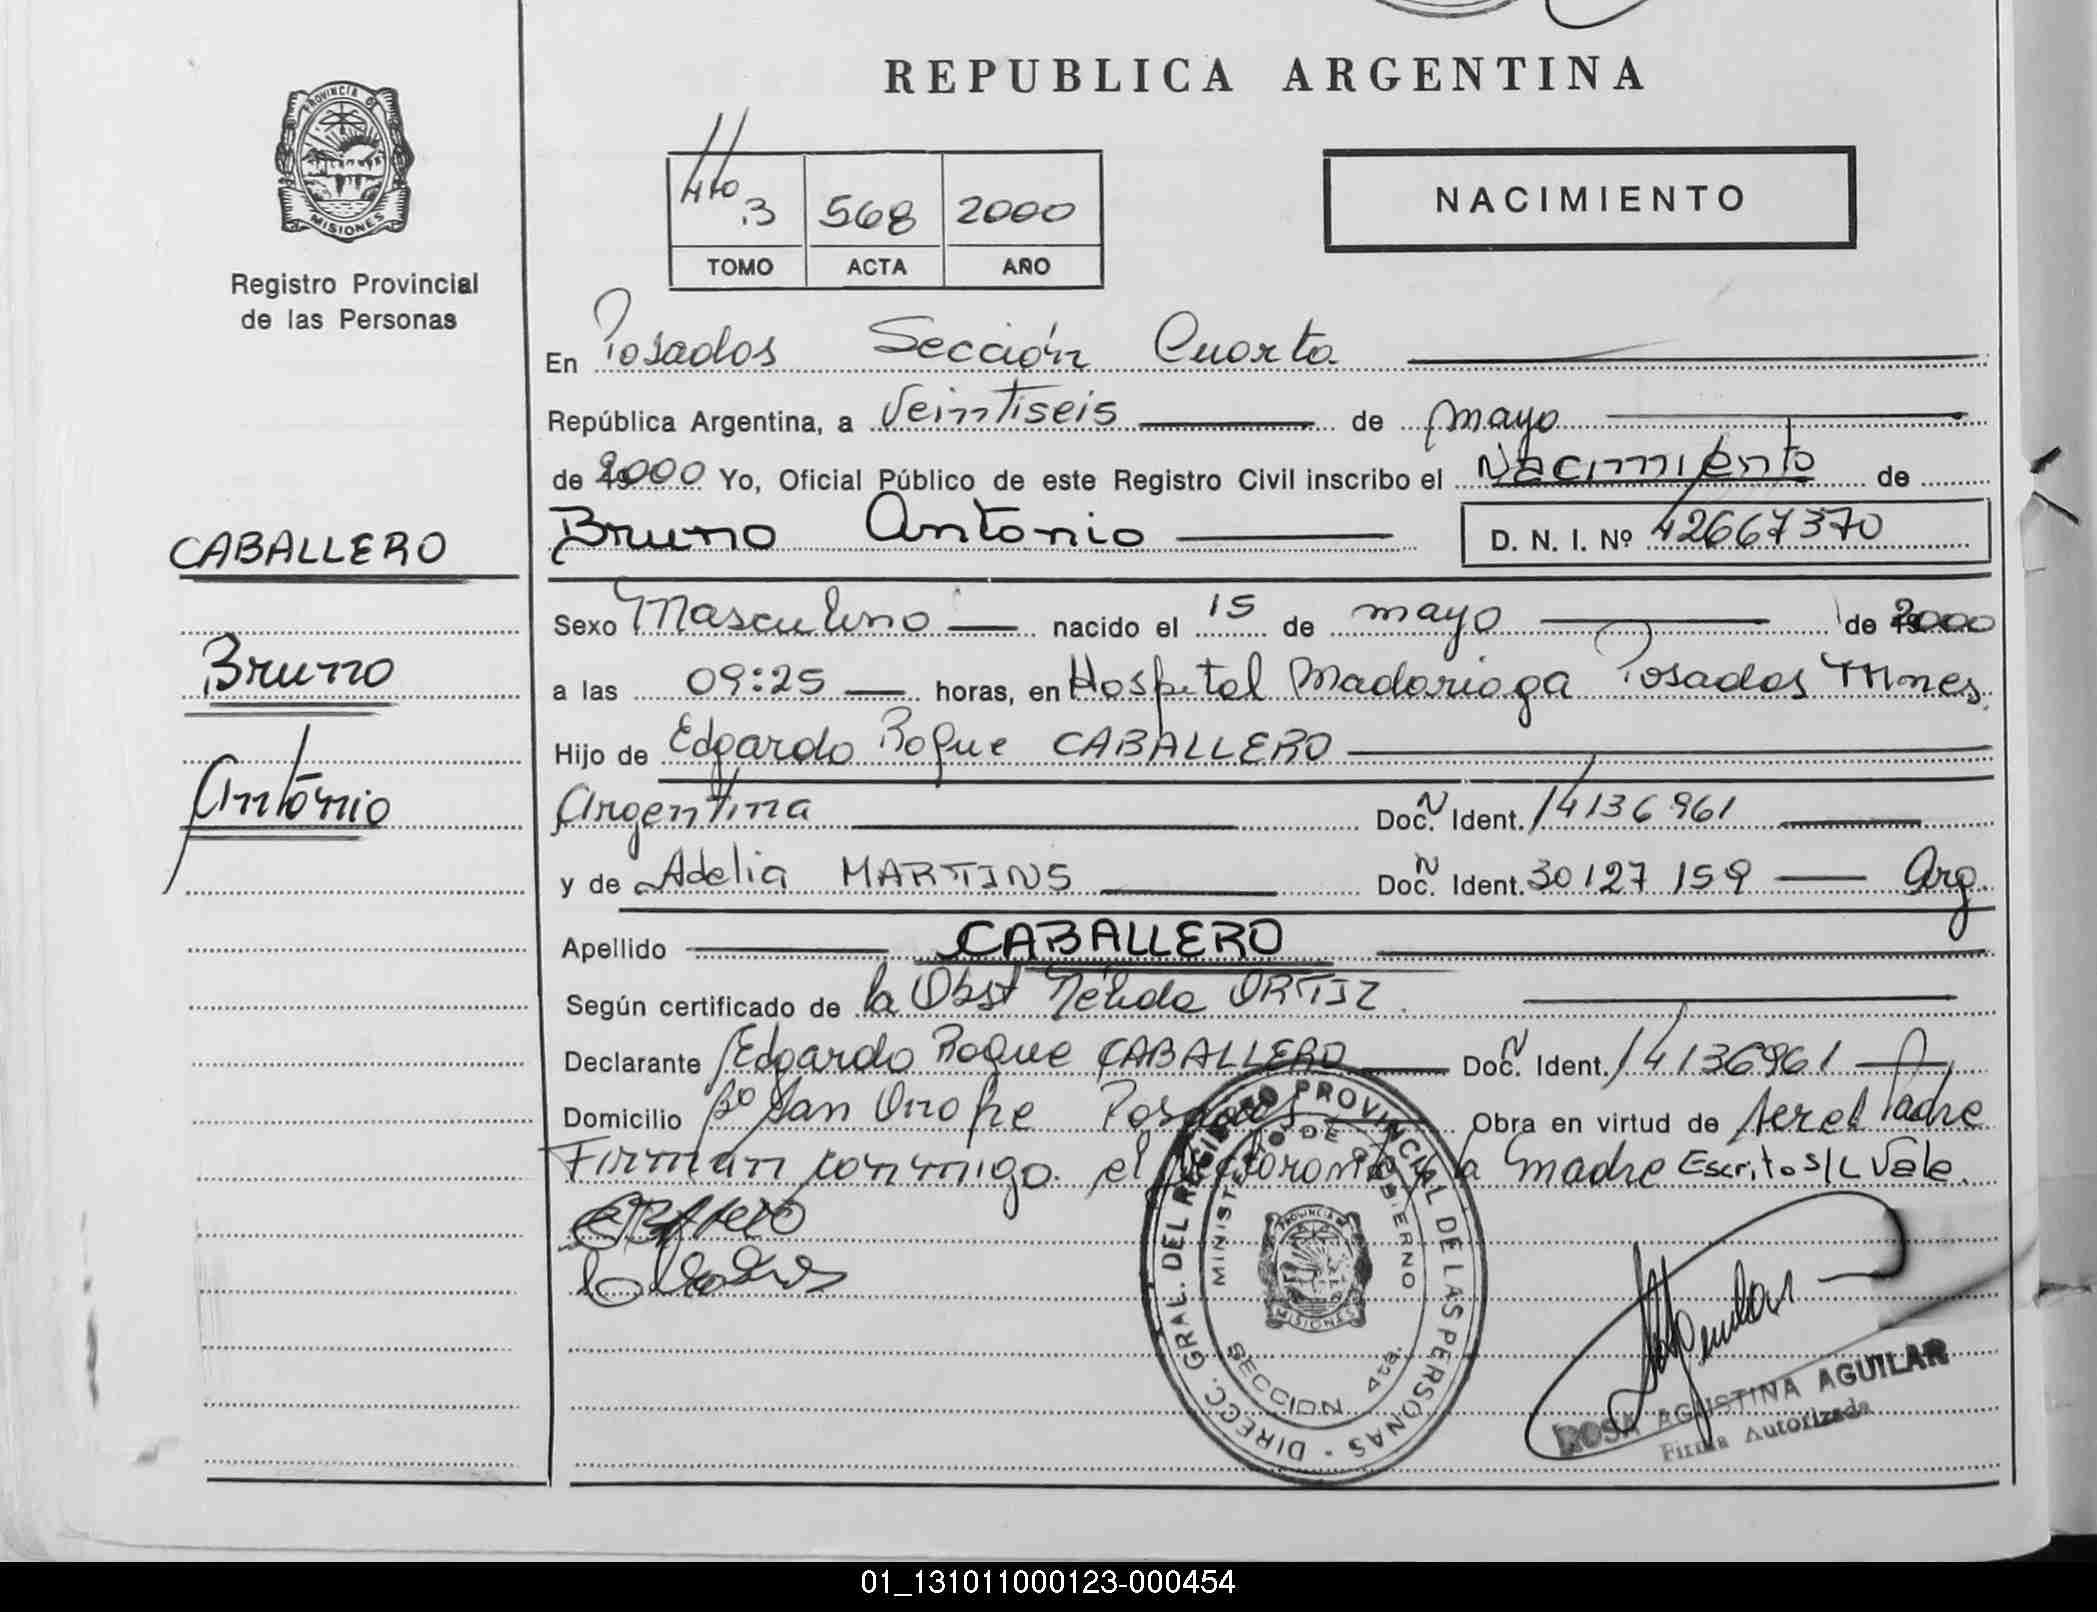 REPUBLICA ARGENTINA
PROVINCIA DE
MISIONES
Registro Provincial
de las Personas
4to 3 568 2000
TOMO ACTA AÑO
NACIMIENTO
En Posadas Sección Cuarta
República Argentina, a Veintiseis de mayo
de 2000 Yo, Oficial Público de este Registro Civil inscribo el Nacimiento de
Bruno Antonio D. N. I. Nº 42667370
CABALLERO
Bruno
Antonio
Sexo Masculino nacido el 15 de mayo de 2000
a las 09:25 horas, en Hospital Madariaga Posadas Mnes.
Hijo de Edgardo Roque CABALLERO
Argentina Doc. N Ident. 14136961
y de Adelia MARTINS Doc. N Ident. 30127159 Arg.
Apellido CABALLERO
Según certificado de la Obst Nélida ORTIZ.
Declarante Edgardo Roque CABALLERO Doc. N Ident. 14136961
Domicilio Bº San Onofre Posadas Obra en virtud de ser el Padre
Firman conmigo el declarante y la madre Escrito S/L Vale.
DIRECC. GRAL. DEL REGISTRO PROVINCIAL DE LAS PERSONAS
MINISTERIO DE GOBIERNO
PROVINCIA DE
MISIONES
SECCION 4ta.
ROSA AGUSTINA AGUILAR
Firma Autorizada
01_131011000123-000454